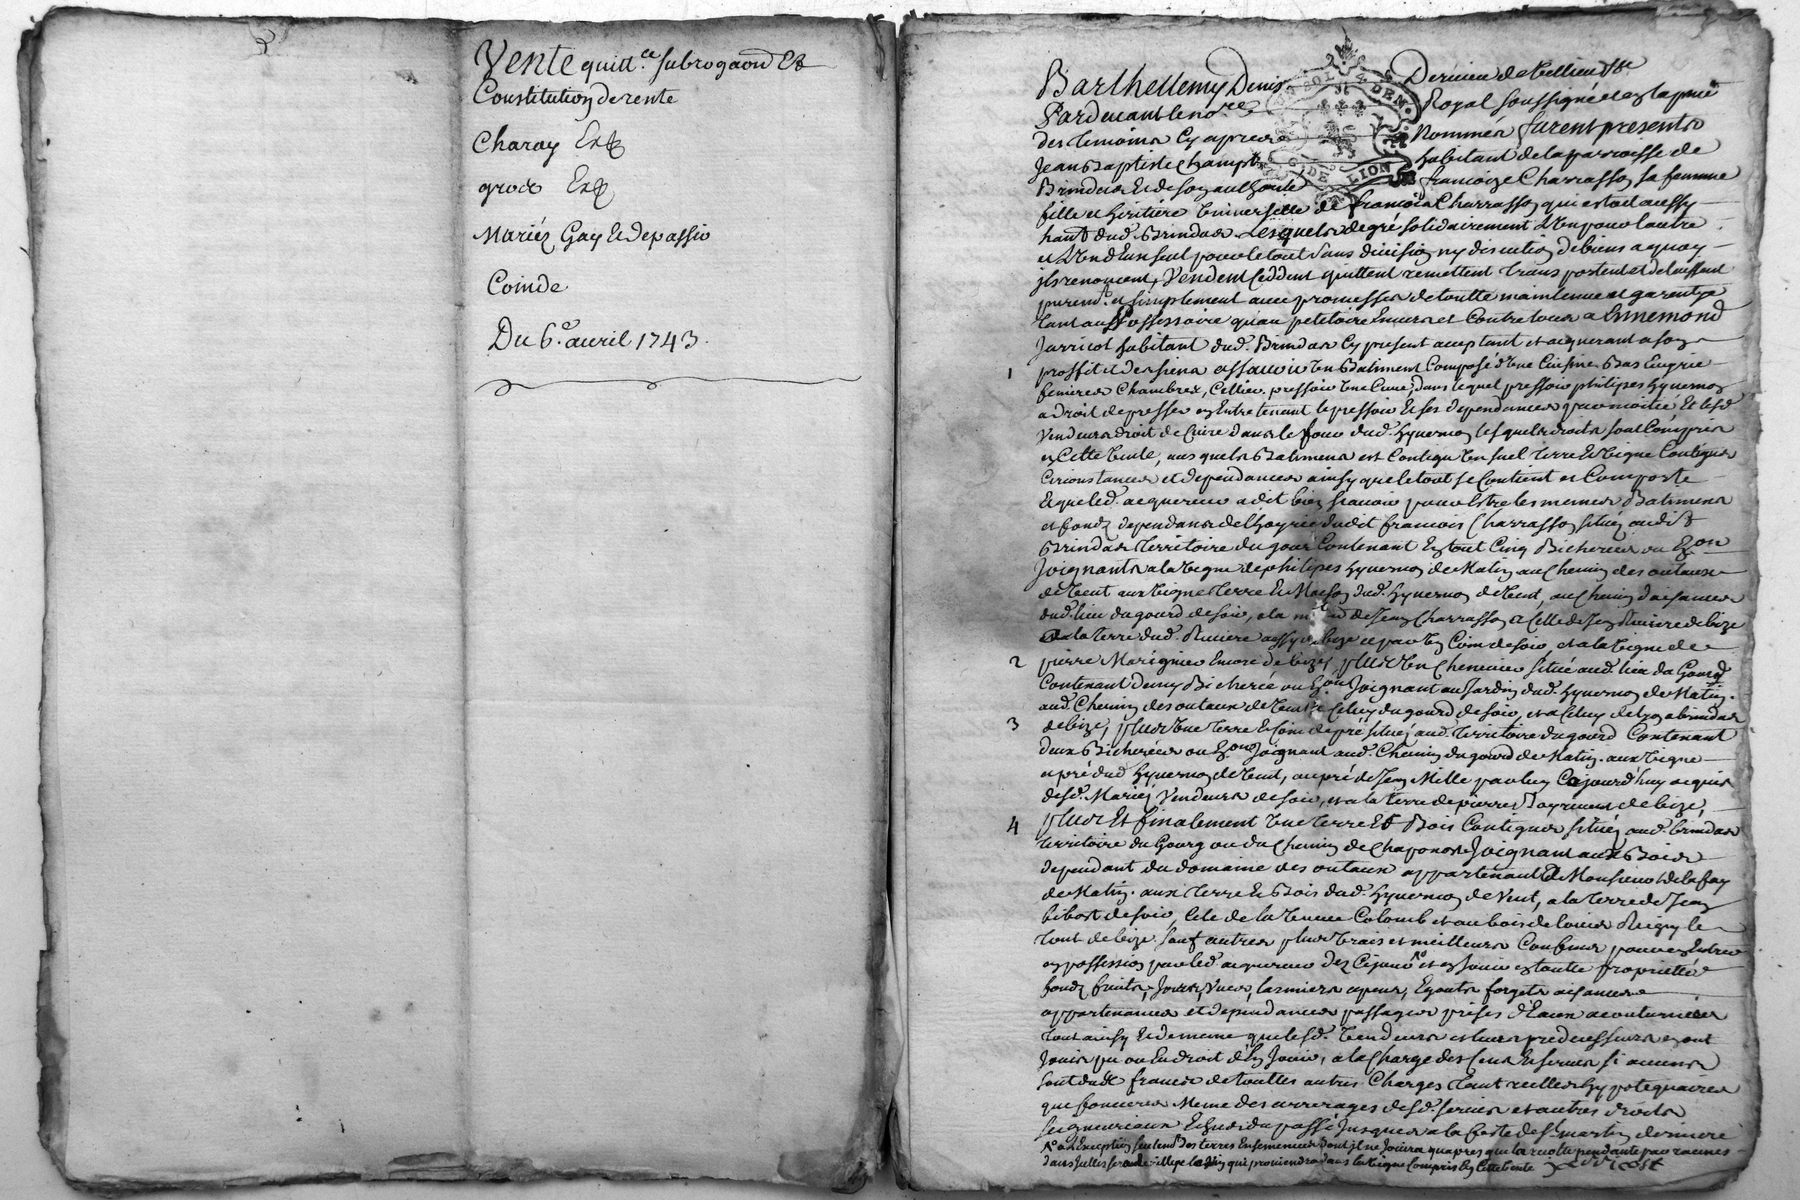 Vente quitt.ce subrogaon Et
Constitution de rente
Charay Exp
gros Exp
Mariez Gay Et depassio
Coinde
Du 6.e avril 1743.
Barthellemy Denis Dervieu de Vellieu
Pardevant le no.re Royal soussigné et en la pnce
des temoins Cy apres Nommés furent presents
Jean Baptiste Champt habitant de la parroisse de
Brindas Et de son authorité francoize Charrasson sa femme
fille et heritiere Universelle de francois Charrasson qui estoit aussy
hant dud. Brindas Lesquels de gré solidairement L'un pour l'autre
et L'un d'Eux seul pour le tout sans division ny discution de biens a quoy
jls renoncent, Vendent Ceddent quittent remettent transportent et delaissent
purem.t et simplement avec promesses de toutte maintenue et garentye
tant au Possessoire qu'au petitoire Envers et Contre tous a Ennemond
Jarricot habitant dud. Brindas Cy present acceptant et acquerant a son
1 proffit et des siens assavoir Un Batiment Composé d'Une Cuisine Bas Ecurie
fenieres Chambres, Cellier, pressoir Une Cuve, dans lequel pressoir philipes hyvernon
a droit de presser en Entretenant le pressoir Et ses dependances par moitié Et lesd
Vendeurs droit de Cuire dans le four dud. hyvernon lesquels droits sont Compris
en Cette Vente, aus quels Batimens est Contigu Un suel terre Et Vigne Contigues
Circonstances et dependances ainsy que le tout se Contient et Comporte
Et que led. acquereur a dit bien scavoir pour Estre les memes Batimens
et fondz dependans de l'hoyrie dudit francois Charrasson situez audit
Brindas territoire du gour Contenant En tout Cinq Bicherées ou Eon
Joignants a la Vigne de philipes hyvernon de Matin au Chemin des outaux
de Vent aux Vigne terre Et Maison dud. hyvernon de Vent, au Chemin d'aisances
dud. lieu du gourd de soir, a la de Jean Charrasson a Celle de Jean Riviere de bize
a la terre dud. Riviere aussy de bize et par Un Coin de soir, et a la Vigne de
2 pierre Marignier Encore de bize, plus Un Chenevier situé aud. lieu du Gourd
Contenant demy Bicherée ou Eon Joignant au Jardin dud. hyvernon de Matin.
aud. Chemin des outaux de Vent a Celuy du gourd de soir, et a Celuy de lyon a brindas
3 de bize, plus Une terre Et Coin de pré situez aud. territoire du gourd Contenant
deux Bicherées ou Eon Joignant aud. Chemin du gourd de Matin. aux Vigne
et pré dud hyvernon de Vent, au pré de Jean Mille par luy Cejourd'huy acquis
desd. Mariez Vendeurs de soir, et a la terre de pierre de bize,
4 plus Et finalement Une terre Et Bois Contigues situez aud. brindas
territoire du Gourg ou du Chemin de Chaponost Joignant aux Bois
dependant du domaine des outaux appartenant a Monsieur delafay
de Matin. aux terre Et Bois dud. hyvernon de Vent, a la terre de Jean
bibost de soir, Cele de la Veuve Colomb et au bois de louis le
tout de bize sauf autres plus Vrais et meilleurs Confins pour en Entrer
en possession par led. acquereur dez Cejourd'huy et en Jouir en toutte proprietté
fondz fruits, Jours, Vues, larmiers apeur, Egouts forgets aisances
appartenances et dependances passages prises d'Eaux acoutumées
tout ainsy Et de meme que lesd. Vendeurs et leurs predecesseurs en ont
Jouis pu ou Eu droit d'En Jouir, a la Charge des Cens Et servis si aucuns
sont dus francs de touttes autres Charges tant reelles hypotequaires
que foncieres Meme des arrerages desd. servis et autres droits
seigneuriaux Echus du passé Jusques a la feste de St martin derniere
a l'Exception seulem.t des terres Ensemencées dont il ne Jouira qu'apres que la recolte pendante par racines
dans Icelles sera qui proviendra dans la Vigne Compris En Cette Vente